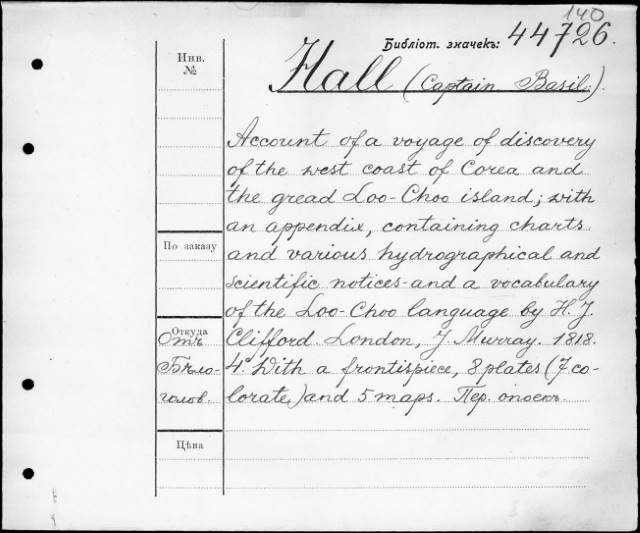 140
Библіот. значекъ: 44726.
Инв.
№
Hall (Captain Basil.).
Account of a voyage of discovery
of the west coast of Corea and
the gread Loo-Choo island; with
an appendix, containing charts
По заказу
and various hydrographical and
scientific notices-and a vocabulary
of the Loo-Choo language by H. J.
Откуда
Отъ
Clifford. London, J. Murray. 1818.
Бѣло-
4° With a frontispiece, 8 plates (7 co-
голов.
lorate) and 5 maps. Пер. опоекъ.
Цѣна